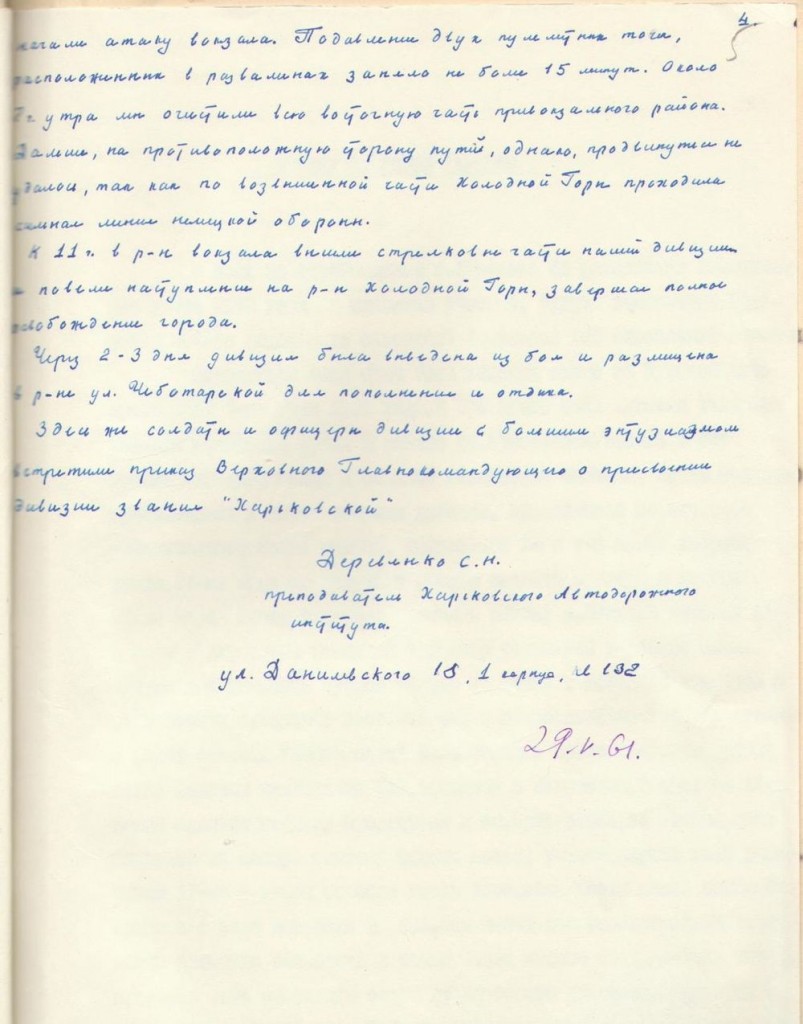 4.
5
начали атаку вокзала. Подавление двух пулеметных точек,
расположенных в развалинах заняло не более 15 минут. Около
7 г. утра мы очистили всю восточную часть привокзального района.
Дальше, на противоположную сторону путей, однако, продвинуться не
удалось, так как по возвышенной части Холодной Горы проходила
сильная линия немецкой обороны.
К 11 г. в р-н вокзала вышли стрелковые части нашей дивизии
и повели наступление на р-н Холодной Горы, завершая полное
освобождение города.
Через 2-3 дня дивизия была выведена из боя и размещена
в р-не ул. Чеботарской для пополнения и отдыха.
Здесь же солдаты и офицеры дивизии с большим энтузиазмом
встретили приказ Верховного Главнокомандующего о присвоении
дивизии звания "Харьковской"
Деревянко С.Н.
преподаватель Харьковского Автодорожного
института.
ул. Данилевского 18, 1 корпус, кв 132
29.V.61.